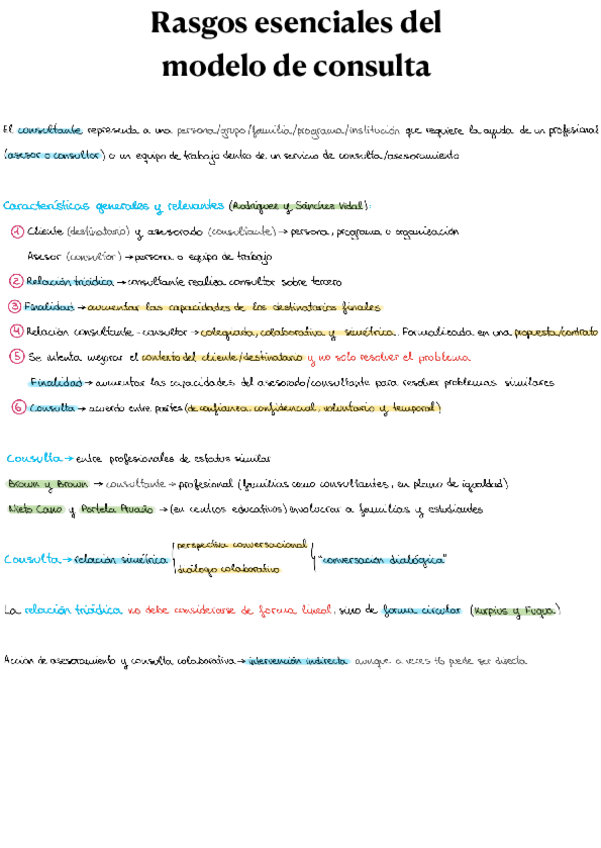 Rasgos esenciales del
modelo de consulta
El consultante representa a una persona/grupo/familia/programa/institución que requiere la ayuda de un profesional
(asesor o consultor) o un equipo de trabajo dentro de un servicio de consulta/asesoramiento
Características generales y relevantes (Rodríguez y Sánchez Vidal):
1 Cliente (destinatario) y asesorado (consultante) → persona, programa o organización
Asesor (consultor) → persona o equipo de trabajo
2 Relación triádica → consultante realiza consultor sobre tercero
3 Finalidad → aumentar las capacidades de los destinatarios finales
4 Relación consultante - consultor → colegiada, colaborativa y simétrica. Formalizada en una propuesta/contrato
5 Se intenta mejorar el contexto del cliente/destinatario y no solo resolver el problema
Finalidad → aumentar las capacidades del asesorado/consultante para resolver problemas similares
6 Consulta → acuerdo entre partes (de confianza, confidencial, voluntario y temporal)
Consulta → entre profesionales de estatus similar
Brown y Brown → consultante → profesional (familias como consultantes, en plano de igualdad)
Nieto Cano y Portela Pruaño → (en centros educativos) involucrar a familias y estudiantes
Consulta → relación simétrica perspectiva conversacional
diálogo colaborativo "conversación dialógica"
La relación triádica no debe considerarse de forma lineal, sino de forma circular (Kurpius y Fuqua)
Acción de asesoramiento y consulta colaborativa → intervención indirecta aunque a veces tb puede ser directa